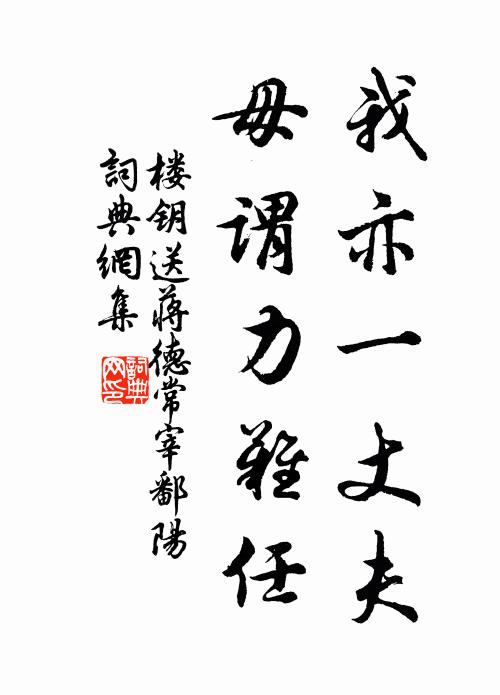 我亦一丈夫
毋谓力难任
楼钥送蒋德常宰鄱阳
词典网集
詞典
网印